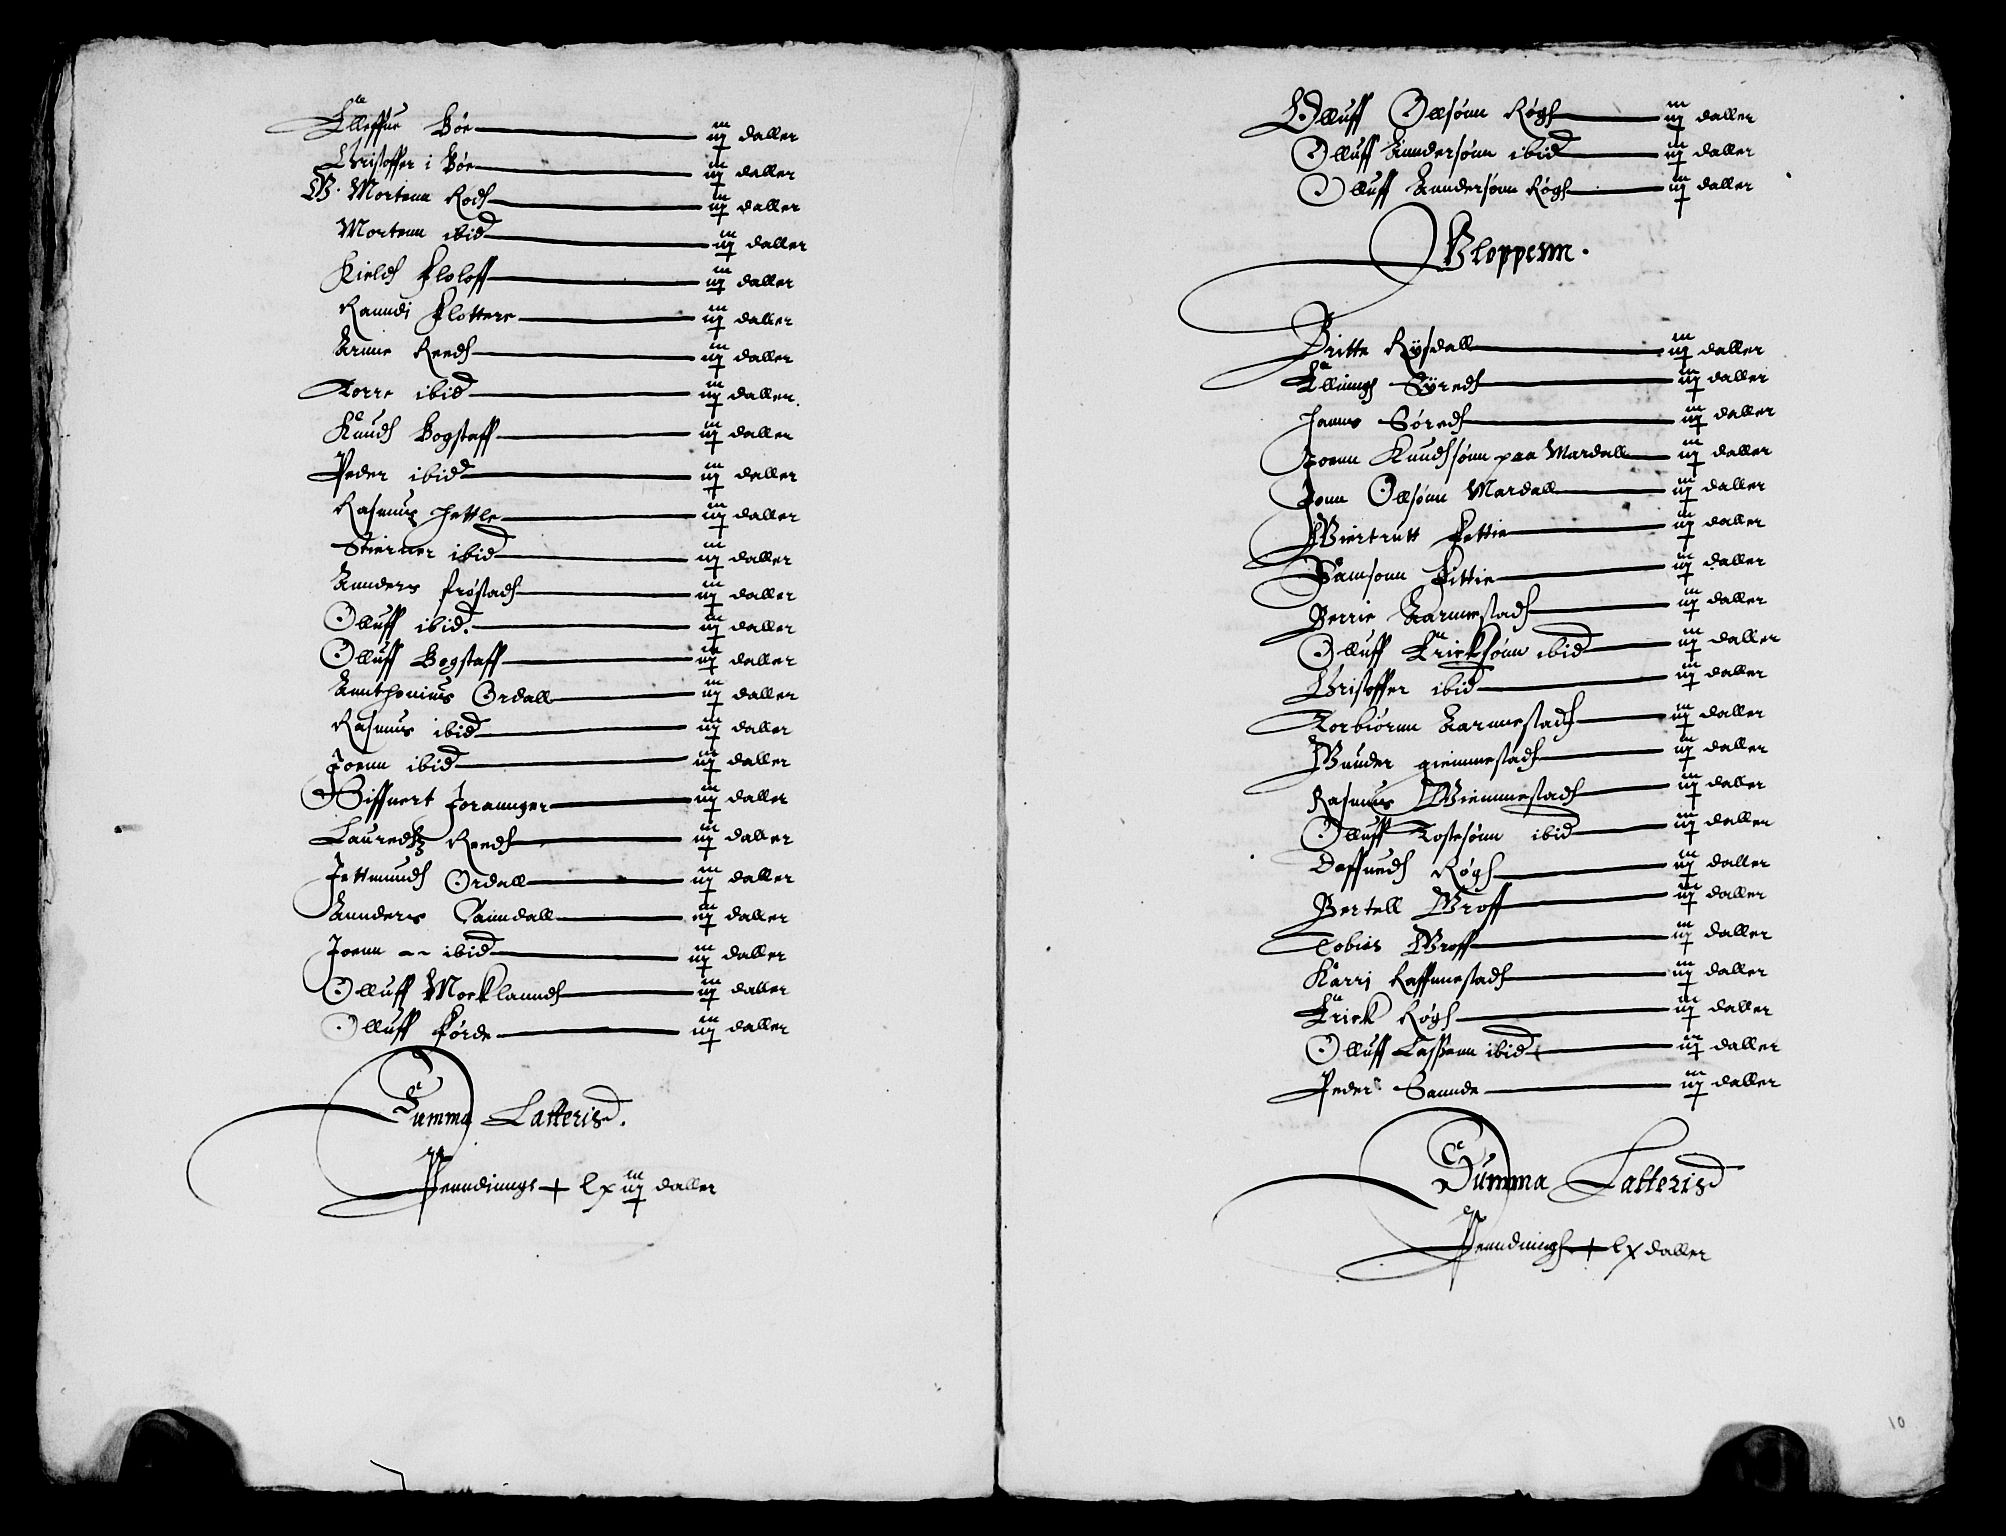 Elleffue Bøe — iij daller
Christoffer i Bøe — iij daller
G. Mortenn Rodh — iij daller
Mortenn ibid — iij daller
Kieldh Floloff — iij daller
Ranndi Flottere — iij daller
Arnne Reedh — iij daller
Torre ibid — iij daller
Knudh Bogstaff — iij daller
Peder ibid — iij daller
Rasmus Hettle — iij daller
Stierner ibid — iij daller
Anders Frøstadh — iij daller
Olluff ibid. — iij daller
Olluff Bogstaff — iij daller
Annthonius Ordall — iij daller
Rasmus ibid — iij daller
Joenn ibid — iij daller
Siffuert Joranger — iij daller
Lauredtz Reedh — iij daller
Jettmundh Ordall — iij daller
Annders Sanndall — iij daller
Joenn -- ibid — iij daller
Olluff Mocklanndh — iij daller
Olluff Førde — iij daller
Summa Latteris.
Penndinnge + lxiij daller
Olluff Ollsønn Røgh — iij daller
Olluff Anndersønn ibid — iij daller
Olluff Anndersønn Røgh — iij daller
Gloppenn.
Britte Rysdall — iij daller
Ellinngh Syredh — iij daller
Hanns Søredh — iij daller
Joenn Knudhsønn paa Mardall — iij daller
Jonn Ollsønn Mardall — iij daller
Giertrutt Fettie — iij daller
Samsonn Fittie — iij daller
Berrie Karmestadh — iij daller
Olluff Ericksønn ibid — iij daller
Christoffer ibid — iij daller
Torbiørnn Karmestadh — iij daller
Gunder giemmestadh — iij daller
Rasmus Giemmestadh — iij daller
Olluff Tostesønn ibid — iij daller
Deffuedh Røgh — iij daller
Bertell Groff — iij daller
Tobies Groff — iij daller
Karri Raffnnestadh — iij daller
Erick Røgh — iij daller
Olluff Lassenn ibid — iij daller
Peder Sannde — iij daller
Summa Latteris
Penndningh + lx daller
10